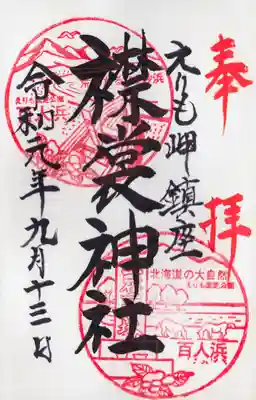 奉拝
えりも岬鎮座
襟裳神社
令和元年九月十三日
百人浜
北海道の大自然
百人浜